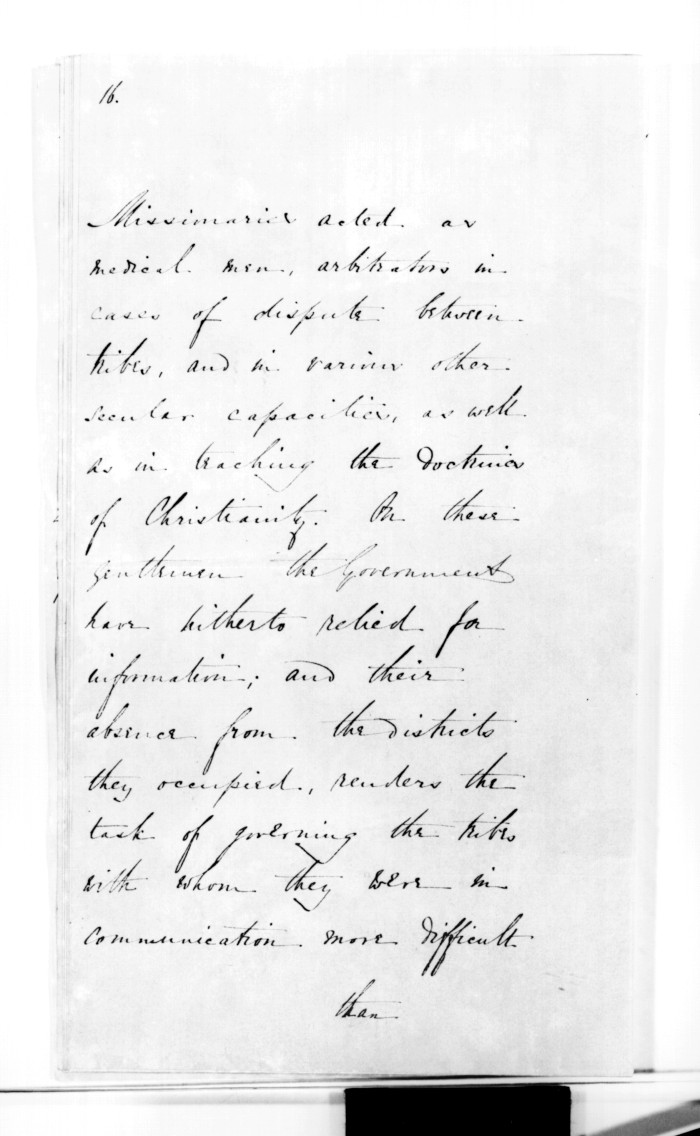 16.
Missionaries acted as
medical men, arbitrators in
cases of dispute between
tribes, and in various other
secular capacities, as well
as in teaching the doctrines
of Christianity. On these
gentlemen the Government
have hitherto relied for
information; and their
absence from the districts
they occupied, renders the
task of governing the tribes
with whom they were in
communication more difficult
than